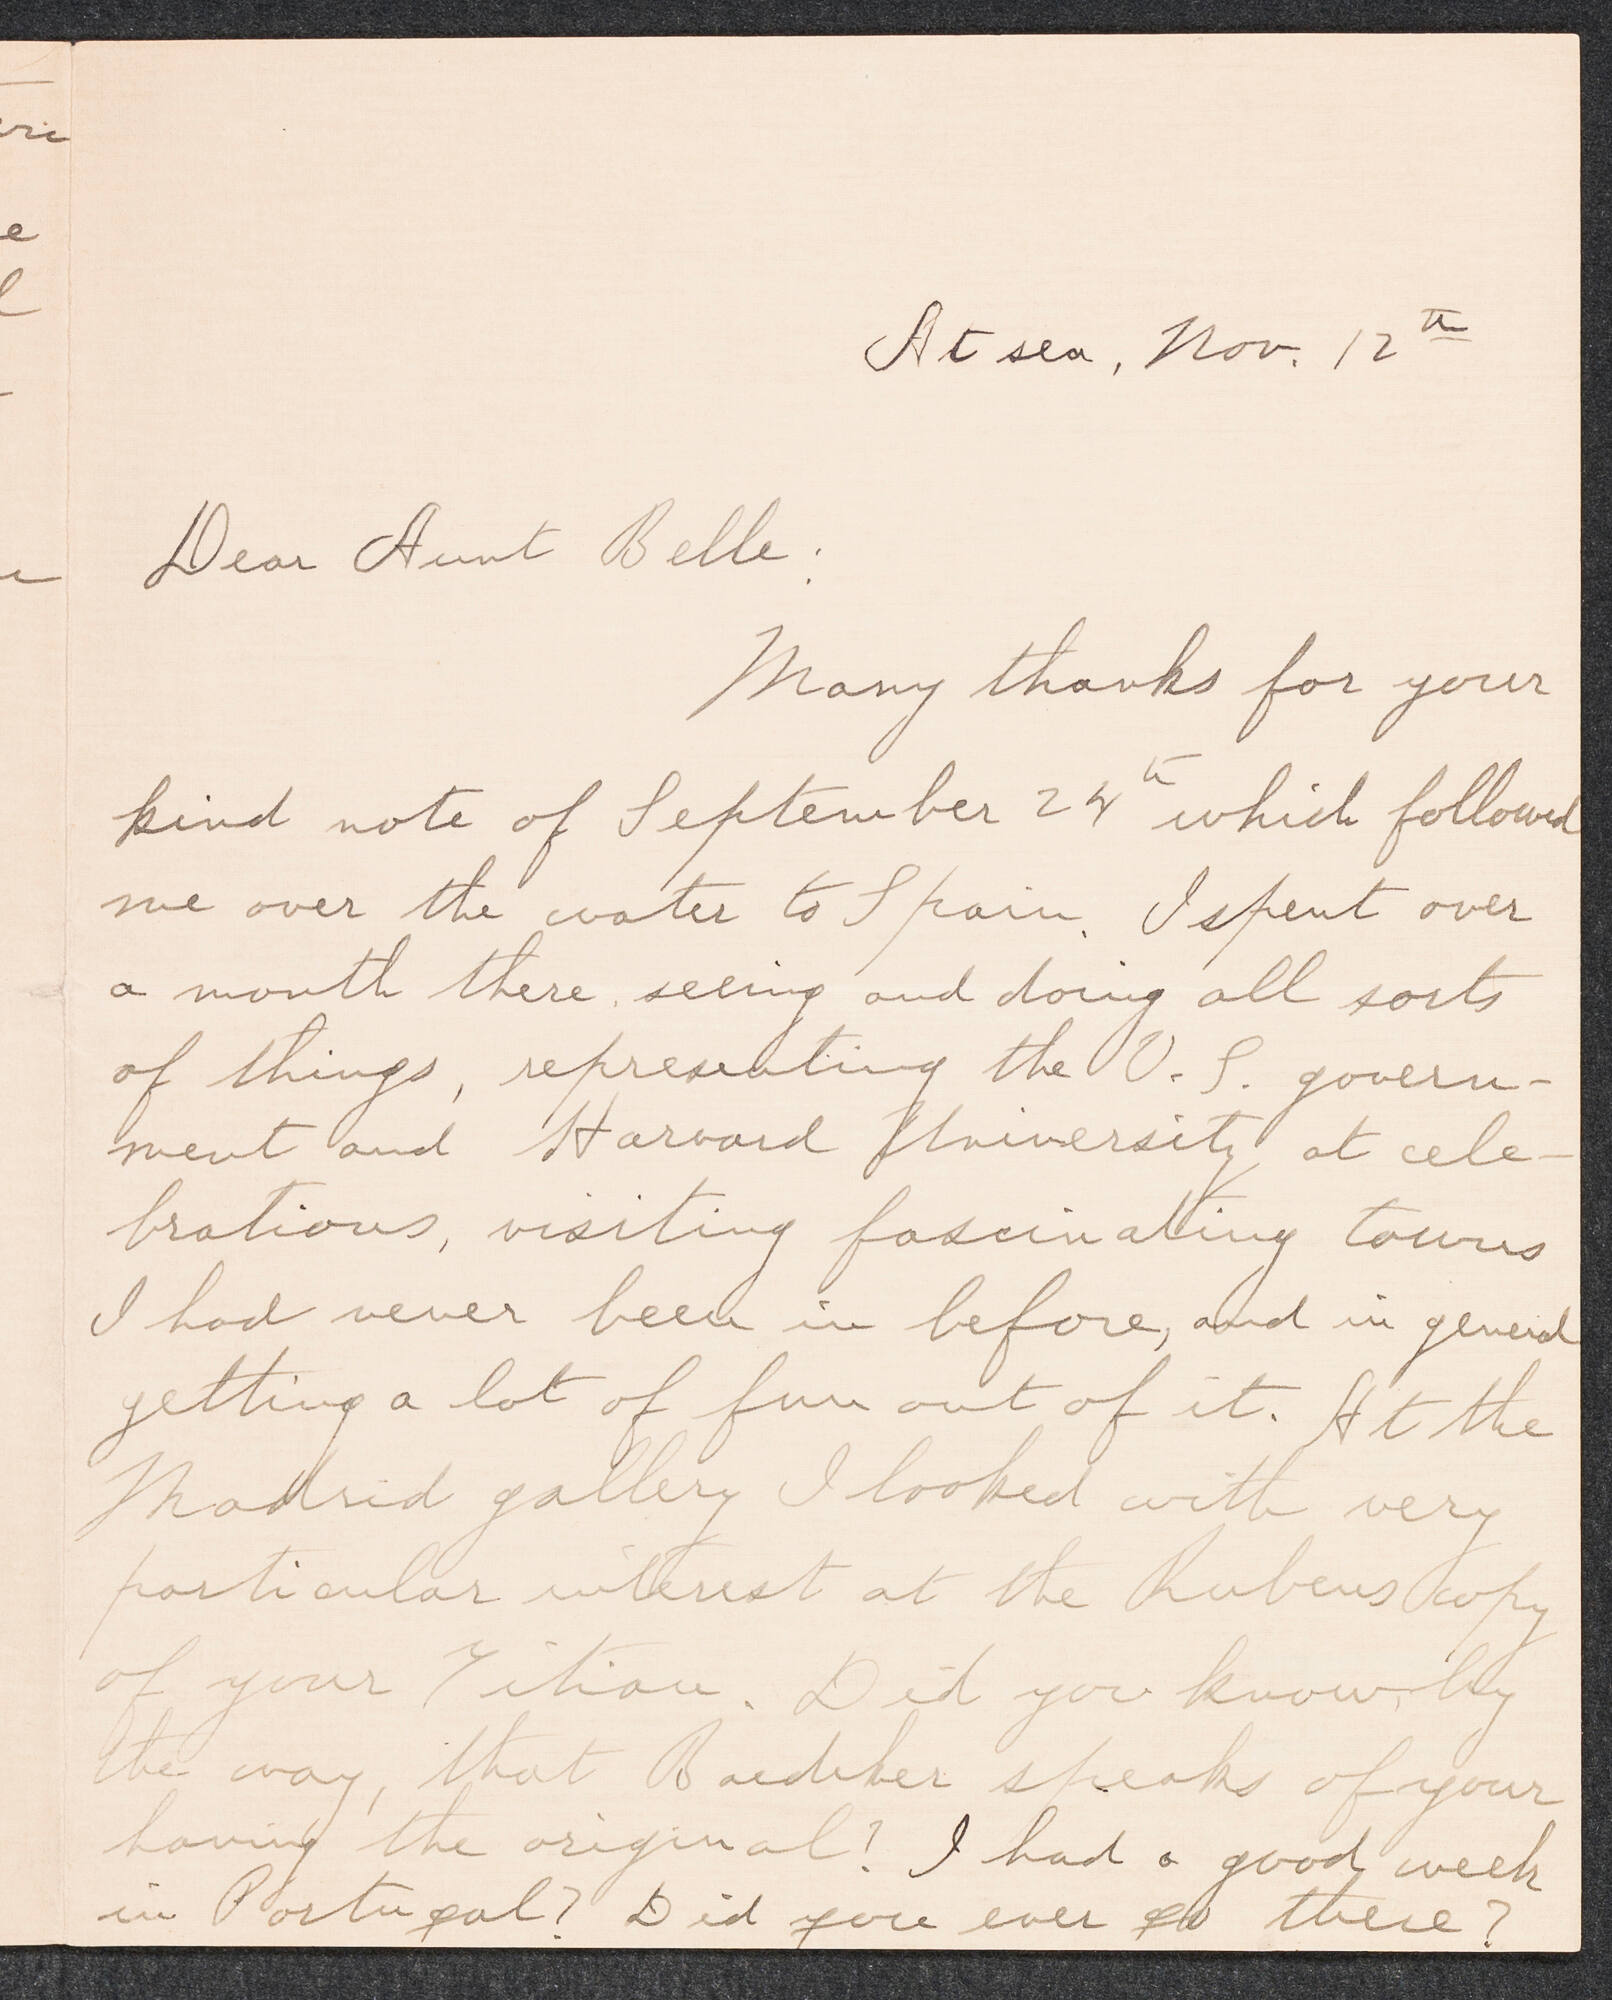 At sea, Nov. 12th
Dear Aunt Belle:
Many thanks for your
kind note of September 24th which followed
me over the water to Spain. I spent over
a month there, seeing and doing all sorts
of things, representing the U.S. govern-
ment and Harvard University at cele-
brations, visiting fascinating towns
I had never been in before, and in general
getting a lot of fun out of it. At the
Madrid gallery I looked with very
particular interest at the Rubens copy
of your Titian. Did you know, by
the way, that Baedeker speaks of your
having the original? I had a good week
in Portugal? Did you ever go there?